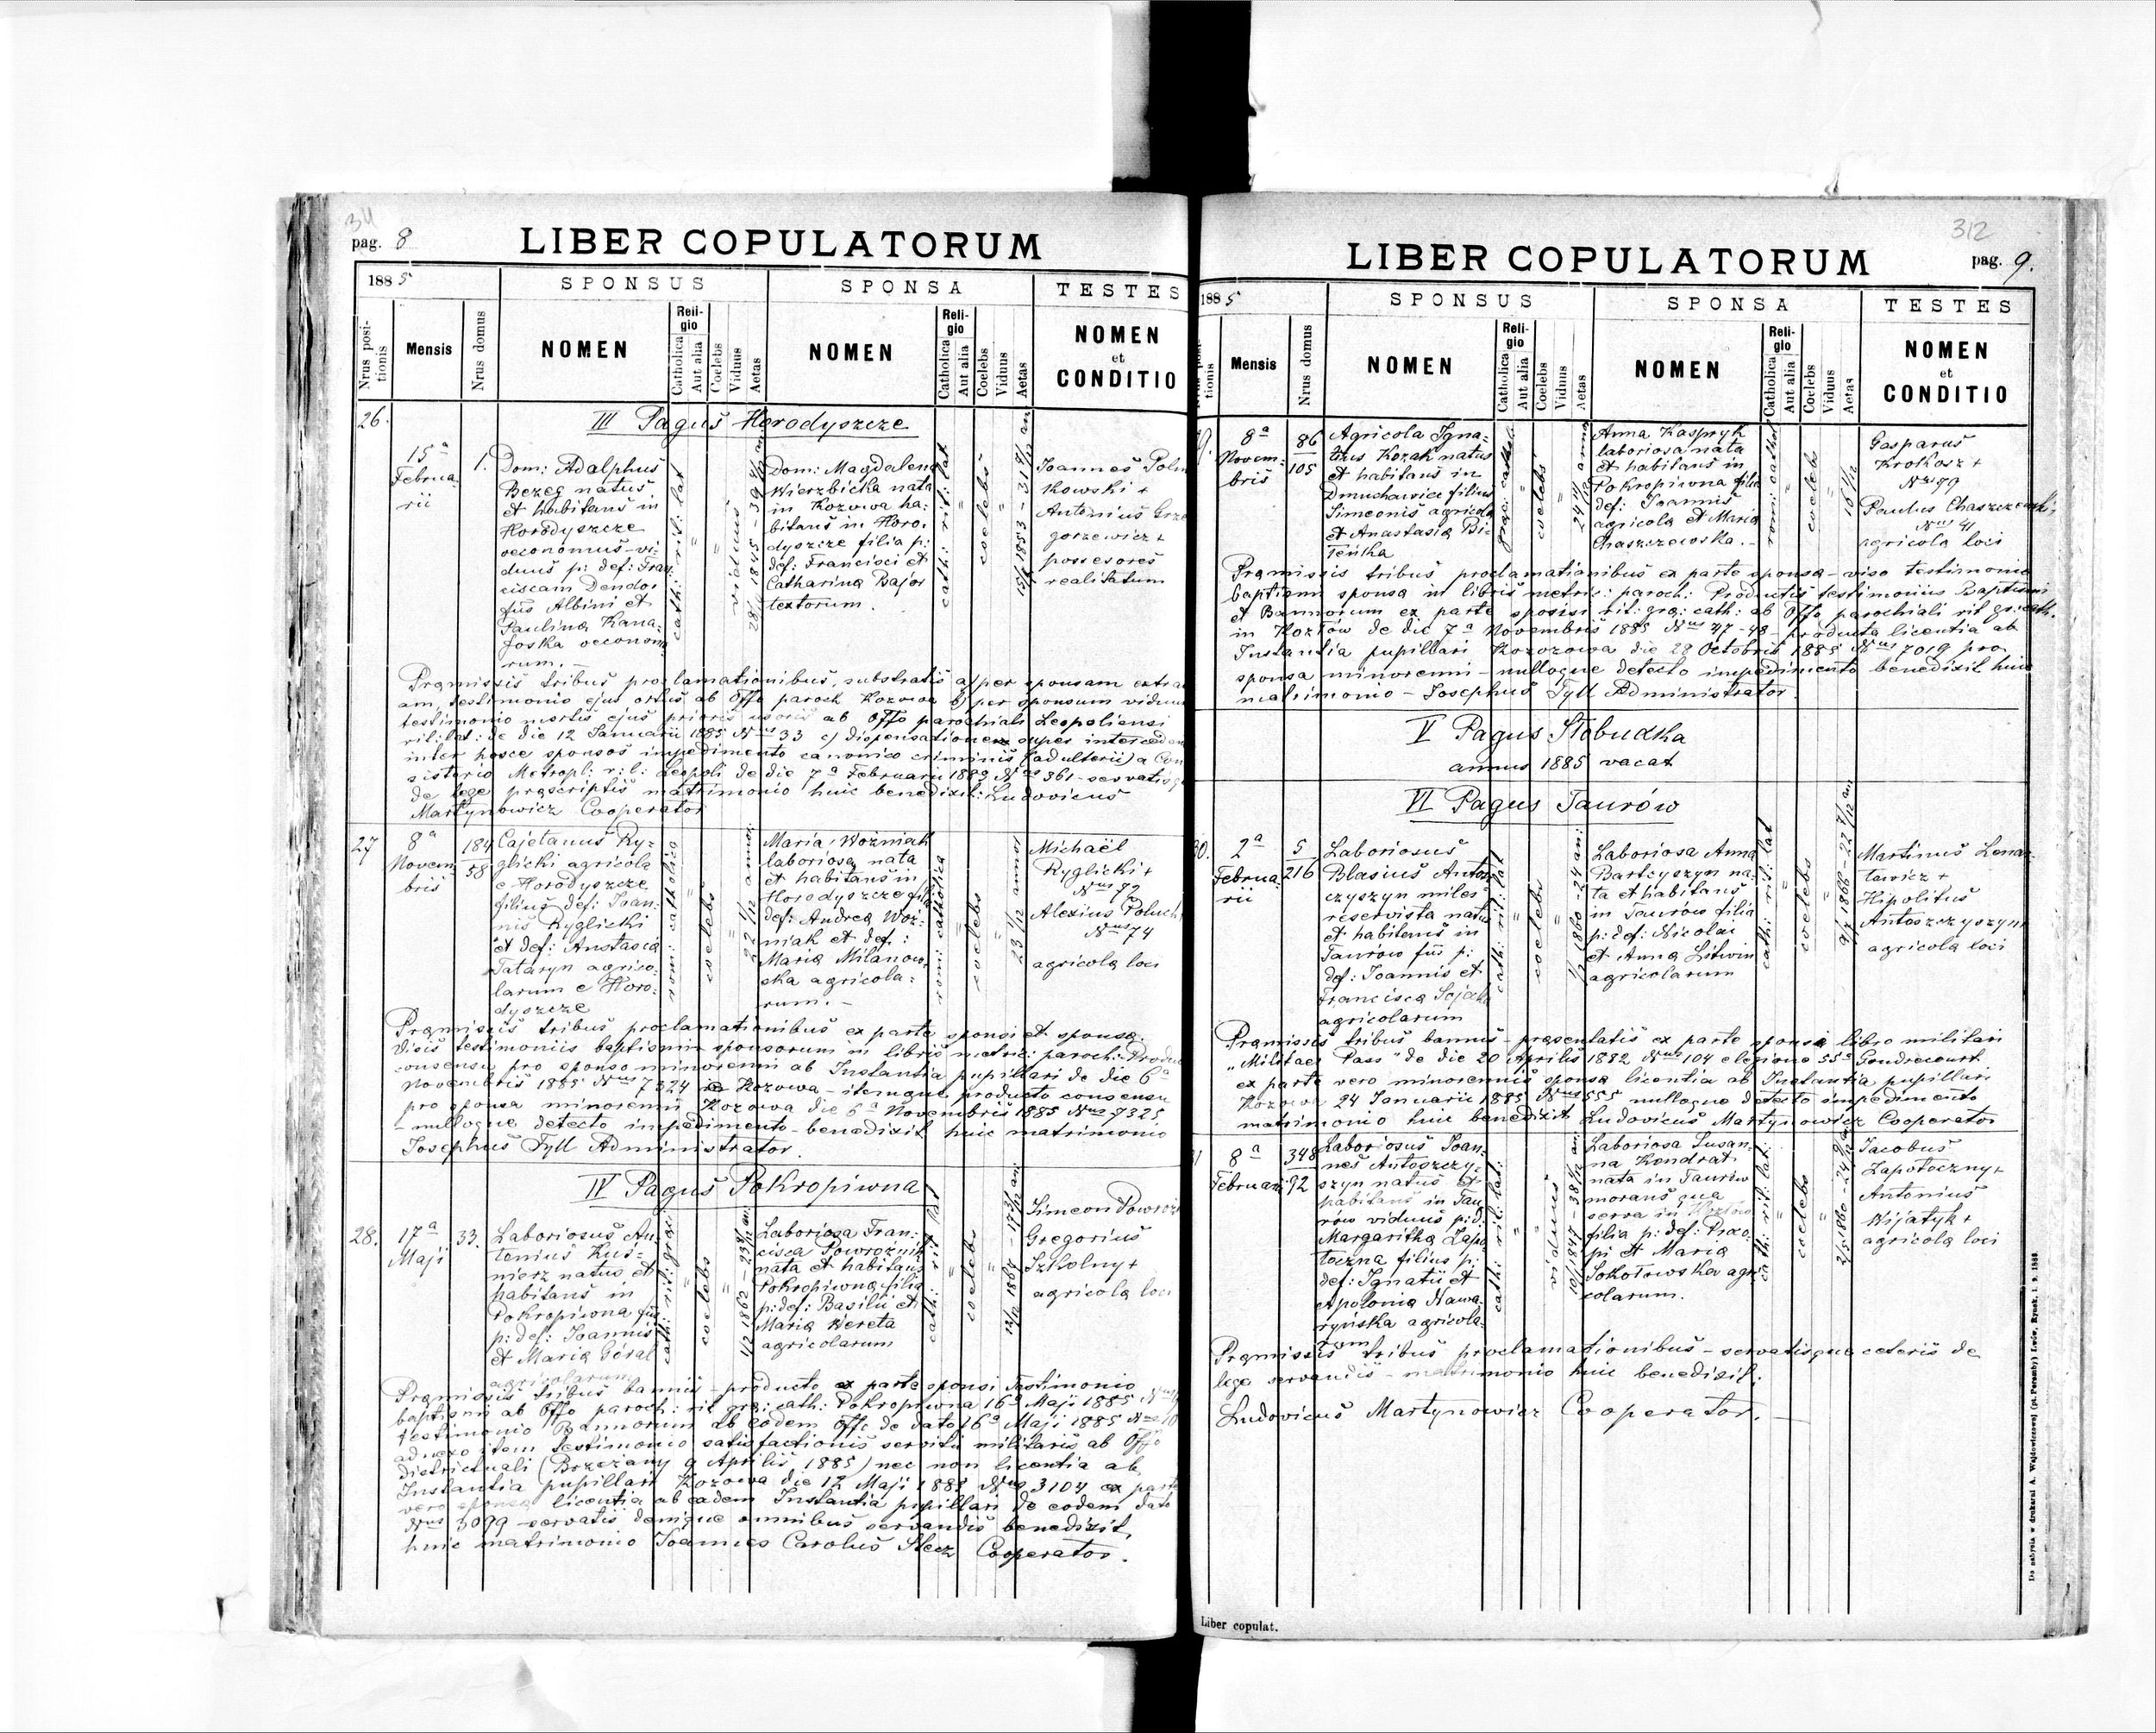 311
pag. 8
LIBER COPULATORUM
1885
SPONSUS
SPONSA
TESTES
Nrus posi-
tionis
Mensis
Nrus domus
NOMEN
Reli-
gio
Catholica
Aut alia
Coelebs
Viduus
Aetas
NOMEN
Reli-
gio
Catholica
Aut alia
Coelebs
Viduus
Aetas
NOMEN
et
CONDITIO
III Pagus Horodyszcze
26.
15ª
Februa-
rii
1.
Dom: Adalphus
Bezeg natus
et habitans in
Horodyszcze
oeconomus - vi-
duus p: def: Fran
ciscam Dendor
fius Albini et
Paulina Kana-
foska oeconom
rum. -
cath: rit: lat
=
=
viduus
Dom: Magdalena
Wierzbicka nata
in Kozowa ha-
bitans in Horo-
dyszcze filia p:
def: Francisci et
Catharina Bajor
textorum.
cath: rit: lat
=
coelebs
=
Joannes
kowski +
Antonius Grze
gorzewicz +
possesores
realitatum
Pramissis tribus proclamationibus, substratis a) per sponsam
am, testimonio ejus ortus ab Offo paroch Kozowa b) per sponsum viduum
testimonio mortis ejus prioris uxoris ab Offo parochiali Leopoliensi
rit: lat: de die 12 Januarii 1885 Nus 33 c) dispensationem super interceden
inter hosce sponsos impedimento canonico criminis (adulterii) a Con
sistorio Metropl: r: l: Leopoli de die 7ª Februarii 1885 Nus 361 - servatis
de lege prascriptis matrimonio huic benedixit: Ludovicus
Martynowicz Cooperator
27
8ª
Novem-
bris
184
58
Cajetanus Ry-
glicki agricola
e Horodyszcze
filius def: Joan-
nis Ryglicki
et def: Anastasia
Tataryn agrico-
larum e Horo-
dyszcze
rom: catholica
=
coelebs
=
22 1/12 annor.
Maria Woźniak
laboriosa nata
et habitans in
Horodyszcze filia
def: Andrea Woź-
niak et def:
Maria Milanow-
ska agricola-
rum. -
rom: catholica
=
coelebs
=
23 1/12 annor
Michaël
Ryglicki +
Nus 72
Alexius Poluch
Nus 74
agricola loci
Pramissis tribus proclamationibus ex parte sponsi et sponsa
visis testimoniis baptismi sponsorum in libris metric: paroch: Produc
consensu pro sponso minorenni ab Instantia pupillari de die 6ª
Novembris 1885 Nus 7324 Kozowa - itemque producto consensu
pro sponsa minorenni Kozowa die 6ª Novembris 1885 Nus 7325
- nulloque detecto impedimento - benedixit huic matrimonio
Josephus Tyll Administrator.
IV Pagus Pokropiwna
28.
17ª
Maji
33.
Laboriosus An-
tonius Kuś-
nierz natus et
habitans in
Pokropiwna fius
p: def: Joannis
et Maria Góral
agricolarum
cath: rit: grac:
=
coelebs
=
Laboriosa Fran-
cisca Powroźnik
nata et habitans
Pokropiwna filia
p: def: Basilii et
Maria Wereta
agricolarum
cath: rit lat
=
coelebs
=
Simeon Powroź
Gregorius
Szkolny +
agricola loci
Pramissis tribus bannis - producto ex parte sponsi testimonio
baptismi ab Offo paroch: rit gra: cath: Pokropiwna 16ª Maji 1885
testimonio Bannorum ab eodem Offo de dato 16ª Maji 1885
adnexo item testimonio satisfactionis servitii militaris ab Offo
districtuali (Brzeżany 9 Aprilis 1885) nec non licentia ab
Instantia pupillari Kozowa die 12 Maji 1885 Nus 3104 ex parte
vero sponsa licentia ab eadem Instantia pupillari de eodem dato
Nus 3099 - servatis denique omnibus servandis benedixit
huic matrimonio Joannes Carolus Stecz Cooperator.
312
LIBER COPULATORUM
pag. 9.
1885
SPONSUS
SPONSA
TESTES
tionis
Mensis
Nrus domus
NOMEN
Reli-
gio
Catholica
Aut alia
Coelebs
Viduus
Aetas
NOMEN
Reli-
gio
Catholica
Aut alia
Coelebs
Viduus
Aetas
NOMEN
et
CONDITIO
9.
8ª
Novem-
bris
86
105
Agricola Igna-
tius Kozak natus
et habitans in
Dmuchawice filius
Simeonis agricola
et Anastasia Bi-
leńka
grac: cathol:
=
coelebs
=
Anna Kaspryk
laboriosa nata
et habitans in
Pokropiwna filia
def: Joannis
agricola et Maria
Chaszczewska. -
rom: cathol
=
coelebs
=
16 1/12
Gasparus
Krokosz +
Nus 79
Paulus Chaszczewski
Nus 41
agricola loci
Pramissis tribus proclamationibus ex parte sponsa - viso testimonio
baptismi sponsa in libris metric: paroch: Productis testimoniis Baptismi
et Bannorum ex parte sponsi rit: gra: cath: ab Offo parochiali rit gr: cath.
in Kozłów de die 7ª Novembris 1885 Nus 47-48 - producta licentia ab
Instantia pupillari Kozowa die 28 Octobris 1885 Nus 7019 pro
sponsa minorenni - nulloque detecto impedimento benedixit huic
matrimonio - Josephus Tyll Administrator.
V Pagus Słobudka
annus 1885 vacat
VI Pagus Taurów
30.
2ª
Februa-
rii
5
216
Laboriosus
Blasius Antosz
czyszyn miles
reservista natus
et habitans in
Taurów fius p:
def: Joannis et
Francisca Sojak
agricolarum
cath: rit: lat
=
coelebs
=
Laboriosa Anna
Bartczyszyn na-
ta et habitans
in Taurów filia
p: def: Nicolai
et Anna Litwin
agricolarum
cath: rit: lat
=
coelebs
=
Martinus Lenar
towicz +
Hipolitus
Antoszczyszyn
agricola loci
Pramissis tribus bannis - prasentatis ex parte sponsi libro militari
"Militaer Pass" de die 20 Aprilis 1882 Nus 104 e legione 55ª Gondrecourt
ex parte vero minorennis sponsa licentia ab Instantia pupillari
Kozowa 24 Januarii 1885 Nus 555 nulloque detecto impedimento
matrimonio huic benedixit Ludovicus Martynowicz Cooperator
31
8ª
Februarii
348
92
Laboriosus Joan-
nes Antoszczy-
szyn natus et
habitans in Tau-
rów viduus p: d:
Margaritha Zapo
teczna filius p:
def: Ignatii et
Apolonia Nawa-
ryńska agricola-
rum
cath: rit: lat:
=
=
viduus
Laboriosa Susan-
na Kondrat
nata in Taurów
morans qua
serva in Kozłów
filia p: def: Proco
pi et Maria
Sokołowska agri
colarum.
cath: rit: lat:
=
coelebs
=
Jacobus
Zapotoczny +
Antonius
Wijatyk +
agricola loci
Pramissis tribus proclamationibus - servatisque ceteris de
lege servandis - matrimonio huic benedixit:
Ludovicus Martynowicz Cooperator. -
Liber copulat.